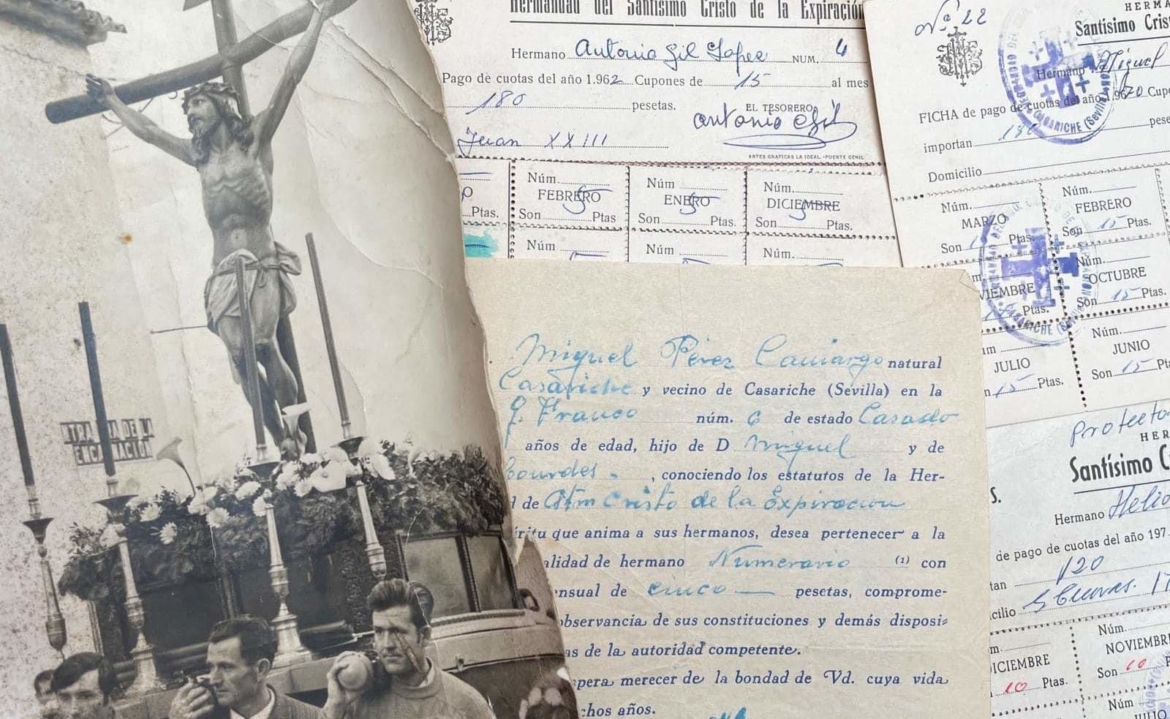 Hermandad del Santísimo Cristo de la Expiración
Hermano Antonio Gil Lopez NUM. 4
Pago de cuotas del año 1.962 Cupones de 15 al mes
180 pesetas. EL TESORERO
Antonio Gil
Juan XXIII
ARTES GRAFICAS LA IDEAL.-PUENTE GENIL
Núm. Núm. Núm.
FEBRERO ENERO DICIEMBRE
5 5 5
Ptas. Son Ptas Son Ptas. Son Ptas.
Núm. Núm. Núm.
Nº 22
HERMA
Santísimo Cris
Hermano Miguel
FICHA de pago de cuotas del año 1.96
importan
pese
Domicilio
CASARICHE (Sevilla)
Núm. Núm.
MARZO FEBRERO
Son Ptas. Son 15 Ptas.
Núm. Núm.
VIEMBRE OCTUBRE
Ptas. Son 15 Ptas.
CASARICHE (Sevilla)
Núm. Núm.
JULIO JUNIO
15 Ptas. Son 15 Ptas.
Miguel Pérez Camargo natural
Casariche y vecino de Casariche (Sevilla) en la
G. Franco núm. 6 de estado Casado
años de edad, hijo de D Miguel y de
Lourdes , conociendo los estatutos de la Her-
d de Stmo Cristo de la Expiracion
íritu que anima a sus hermanos, desea pertenecer a la
alidad de hermano Numerario (1) con
ensual de cinco pesetas, comprome-
observancia de sus constituciones y demás disposi-
as de la autoridad competente.
pera merecer de la bondad de Vd. cuya vida
chos años.
Protecto
HER
S. Santísimo C
Hermano Helio
de pago de cuotas del año 197
tan 120
cilio
Núm.
DICIEMBRE NOVIEMBRE
10 Ptas. Son 10
Núm. Núm
ENCARNACION